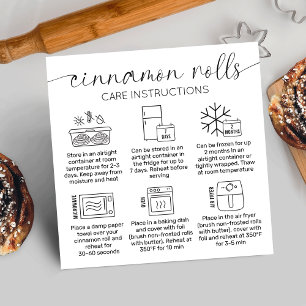 cinnamon rolls
CARE INSTRUCTIONS
Store in an airtight
container at room
temperature for 2-3
days. Keep away from
moisture and heat
BOX
Can be stored in an
airtight container in
the fridge for up to
7 days. Reheat before
serving
2
MONTHS
Can be frozen for up
2 months in an airtight
container or tightly
wrapped. Thaw at
room temperature
MICROWAVE
Place a damp paper
towel over your
cinnamon roll and
reheat for
30-60 seconds
OVEN
Place in a baking dish
and cover with foil
(brush non-frosted rolls
with butter). Reheat at
350°F for 10 min
AIR FRYER
Place in the air fryer
(brush non-frosted rolls
with butter), cover with
foil and reheat at 350°F
for 3-5 min